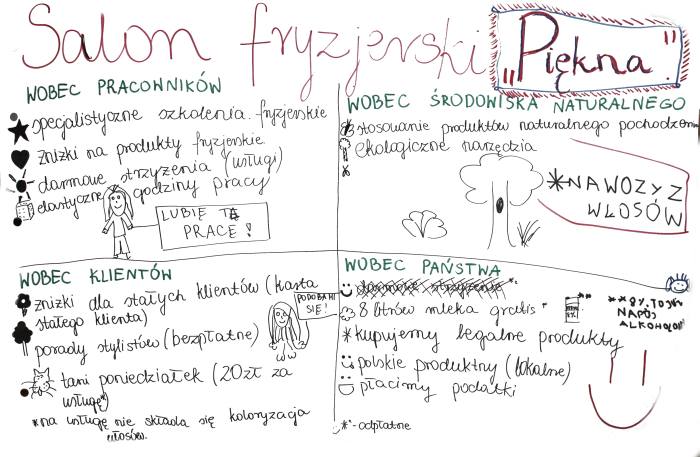 Salon fryzjerski „Piękna"
WOBEC PRACOWNIKÓW
specjalistyczne szkolenia fryzjerskie
zniżki na produkty fryzjerskie
darmowe strzyżenia (usługi)
elastyczne godziny pracy
LUBIĘ TĘ
PRACĘ!
WOBEC ŚRODOWISKA NATURALNEGO
stosowanie produktów naturalnego pochodzen
ekologiczne narzędzia
*NAWOZY Z
WŁOSÓW
WOBEC KLIENTÓW
zniżki dla stałych klientów (karta
stałego klienta)
porady stylistów (bezpłatne)
tani poniedziałek (20zł za
usługę*)
*na usługę nie składa się koloryzacja
włosów.
PODOBA MI
SIĘ!
WOBEC PAŃSTWA
darmowe strzyżenie *
8 litrów mleka gratis *
*kupujemy legalne produkty
polskie produktny (lokalne)
płacimy podatki
*- odpłatne
NAPÓJ